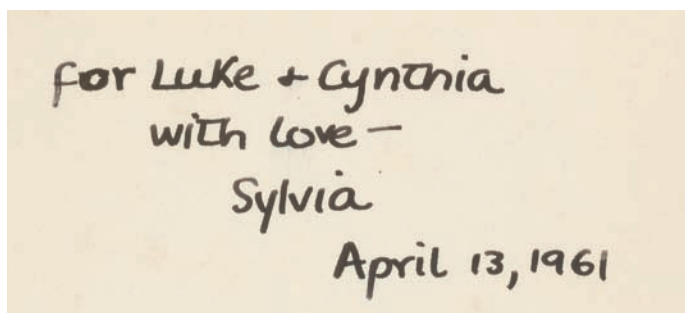 for Luke + Cynthia
with love —
Sylvia
April 13, 1961